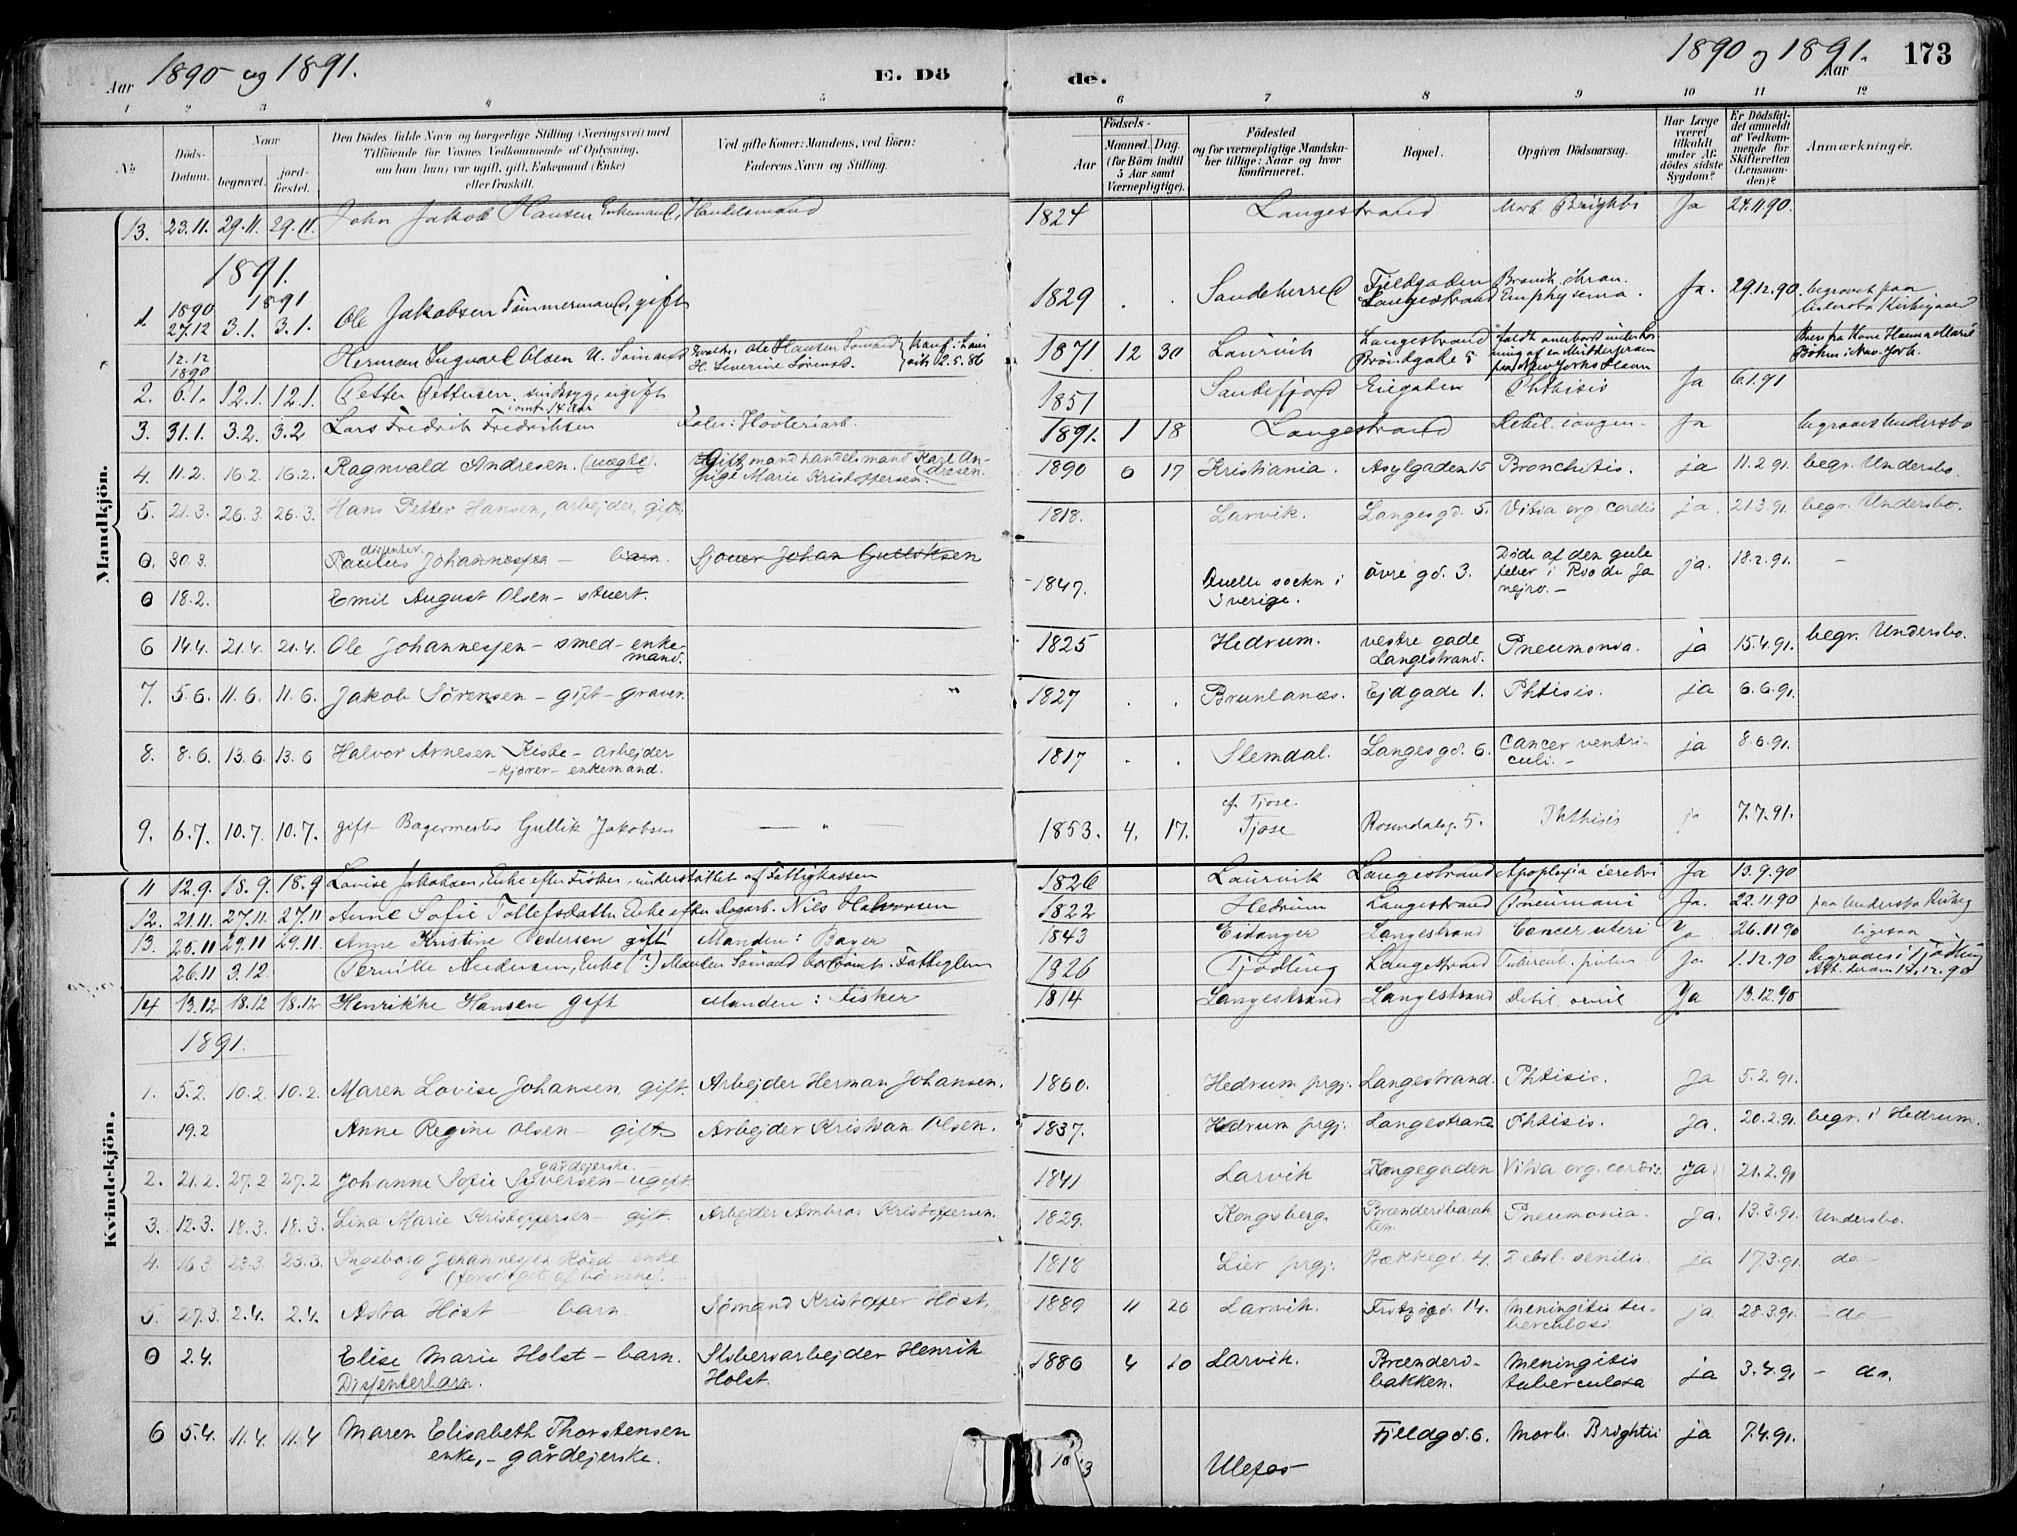 Aar 1890 og 1891.
E. Döde.
1890 og 1891. Aar 173
1 2 3 4 5 6 7 8 9 10 11 12
No
Döds-Datum.
Naar
begravet.
jordfæstet.
Den Dödes fulde Navn og borgerlige Stilling (Næringsvei) med
Tilföiende for Voxnes Vedkommende af Oplysning,
om han (hun) var ugift, gift, Enkemand (Enke)
eller fraskilt.
Ved gifte Koner: Mandens, ved Börn:
Faderens Navn og Stilling.
Födsels-
Aar
Maaned. Dag.
(for Börn indtil
5 Aar samt
Værnepligtige).
Födested
og for værnepligtige Mandska-
ber tillige: Naar og hvor
konfirmeret.
Bopæl.
Opgiven Dödsaarsag.
Har Læge
været
tilkaldt
under Af-
dödes sidste
Sygdom?
Er Dödsfal-
det anmeldt
af Vedkom-
mende for
Skifteretten
(Lensman-
den)?
Anmærkninger.
Mandkjön.
13. 23.11. 29.11. 29.11. John Jakob Hansen Enkemand, Handelsmand 1824 Langestrand Morb. Brightii Ja 24.11.90.
1891.
1. 1890 27.12 1891 3.1. 3.1. Ole Jakobsen Tömmermand, gift 1829 . . Sandeherred Fjeldgaden Langestrand Bronch. chron. Emphysema. Ja. 29.12.90. begravet paa Undersbo Kirkegaard
12.12 1890 Herman Ingvald Olsen U. Sömand Ole Hansen Sömand H. Severine Sörensd. Konf: Laurvik 2.5.86 1871 12 30 Laurvik Langestrand Brandgade 5 faldt overbord under af en Mudderpram paa New Yorks Havn Brev fra Kone Hanna Marie Böhm i New York.
2. 6.1. 12.1. 12.1. Petter Pettersen, sindssyg, ugift i omtr. 14 Aar 1851 Sandefjord Enigaden Phthisis Ja 6.1.91
3. 31.1. 3.2. 3.2 Lars Fredrik Fredriksen Fader: Høvleriarb. 1891. 1 18 Langestrand Debil. congen. Ja begraves Undersbo
4. 11.2. 16.2. 16.2. Ragnvald Andresen. (uægte). Gift mand handelsmand Karl Andresen. pige Marie Kristoffersen. 1890 6 17 Kristiania. Asylgaden 15 Bronchitis. ja 11.2.91. begr. Undersbo.
5. 21.3. 26.3. 26.3. Hans Petter Hansen, arbejder, gift. 1818. Larvik. Langesgd. 5. Vitia org. cordis ja. 21.3.91. begr. Undersbo.
0. 30.3. dissenter. Paulus Johannessen — barn Sjouer Johan Gulliksen
0 18.2. Emil August Olsen — stuert. 1847. Quelle sockn i Sverige. övre gd. 3. Döde af den gule feber i Rio de Janejro. — ja. 18.2.91. —
6 14.4. 21.4. 21.4. Ole Johannesen — smed — enkemand. 1825 Hedrum. vestre gade Langestrand. Pneumonia. ja 15.4.91. begr. Undersbo.
7. 5.6. 11.6. 11.6. Jakob Sörensen — gift — graver. " 1827 . . Brunlanæs. Ejdgade 1. Phtisis. ja 6.6.91.
8. 8.6. 13.6. 13.6 Halvor Arnesen Kiste — arbejder — kjører — enkemand. 1817 . . Slemdal. Langesgd. 6. Cancer ventriculi. — ja 8.6.91.
9. 6.7. 10.7. 10.7. gift Bagermester Gullik Jakobsen — " 1853. 4. 17. Tjose Tjøse Rosendalsg. 5. Phthisis ja 7.7.91.
Kvindekjön.
11 12.9. 18.9. 18.9 Lovise Jakobsen, Enke efter Fisker, understöttet af Fattigkassen 1826 Laurvik Langestrand Apoplexia cerebri Ja 13.9.90
12. 21.11. 27.11. 27.11 Anne Sofie Tollefsdatter Enke efter Dagarb. Nils Halvorsen 1822 Hedrum Langestrand Pneumoni Ja. 22.11.90 paa Undersbo Kirkeg
13. 25.11 29.11 29.11. Anne Kristine Pedersen gift Manden: Bager 1843 Eidanger Langestrand Cancer uteri Ja 26.11.90 ligesaa
26.11 3.12. Pernille Andersen, Enke (?) Manden Sömand Fattiglem 1826 Tjödling Langestrand Tubercul. pulm Ja 1.12.90 begraves i Tjödling
14 13.12 18.12 18.12 Henrikke Hansen gift Manden: Fisker 1814 Langestrand Langestrand Debil. senil Ja 13.12.90
1891.
1. 5.2. 10.2. 10.2. Maren Lovise Johansen, gift. Arbejder Herman Johansen. 1860. Hedrum prgj. Langestrand. Phtisis. Ja 5.2.91.
19.2 Anne Regine Olsen — gift Arbejder Kristian Olsen. 1837. Hedrum prgj. Langestrand Phtisis. Ja. 20.2.91 begr. i Hedrum.
2. 21.2. 27.2 27.2 Johanne Sofie Syversen — ugift. gårdejerske. 1841 Larvik Kongegaden Vitia org. cordis. ja 21.2.91
3. 12.3. 18.3. 18.3. Lina Marie Kristoffersen — gift. Arbejder Ambros Kristoffersen. 1829. Kongsberg. Brændersbarakken. Pneumonia. Ja. 13.3.91. Undersbo.
4. 16.3 23.3. 23.3. Ingeborg Johannesen Röed — enke (forsörget af börnene). — 1818 Lier prgj. Bækkegd. 4. Debil. senilis. ja 17.3.91. do —
5. 27.3. 2.4. 2.4. Asta Höst — barn. Sömand Kristoffer Höst. 1889 11 20 Larvik. Fritzögd. 14. Meningitis tuberculosi ja. 28.3.91. — do
0 2.4. Elise Marie Holst — barn. Dissenterbarn. Sliberiarbejder Henrik Holst. 1886 4 10 Larvik. Brændersbakken. Meningitis tuberculosa ja 3.4.91 — do.
6 5.4. 11.4. 11.4 Maren Elisabeth Thorstensen enke, — gårdejerske. Ulefos Fjeldgd. 6. Morb. Brightii ja 7.4.91.